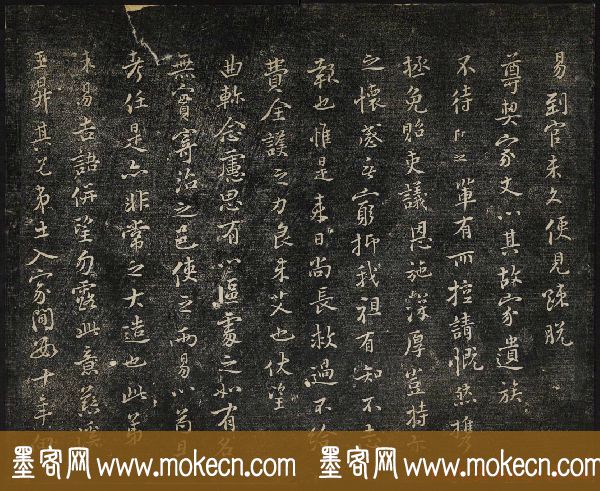 易到官未久便见疎脱
尊契家丈以其故家遺族
不待 軍有所控請慨然
拯免貽吏議恩施深厚豈特
之懷感 窮抑我祖有知不
報也惟是来日尚長救過不给
費全護之力良未艾也伏望
曲軫念慮思有以區處之如有名
無實寄治之邑使之两易以苟
考任是亦非常之大造也此第
未易 語併望勿露此意
其兄弟士人家间 十年
墨客网 www.mokecn.com 墨客网 www.mokecn.com